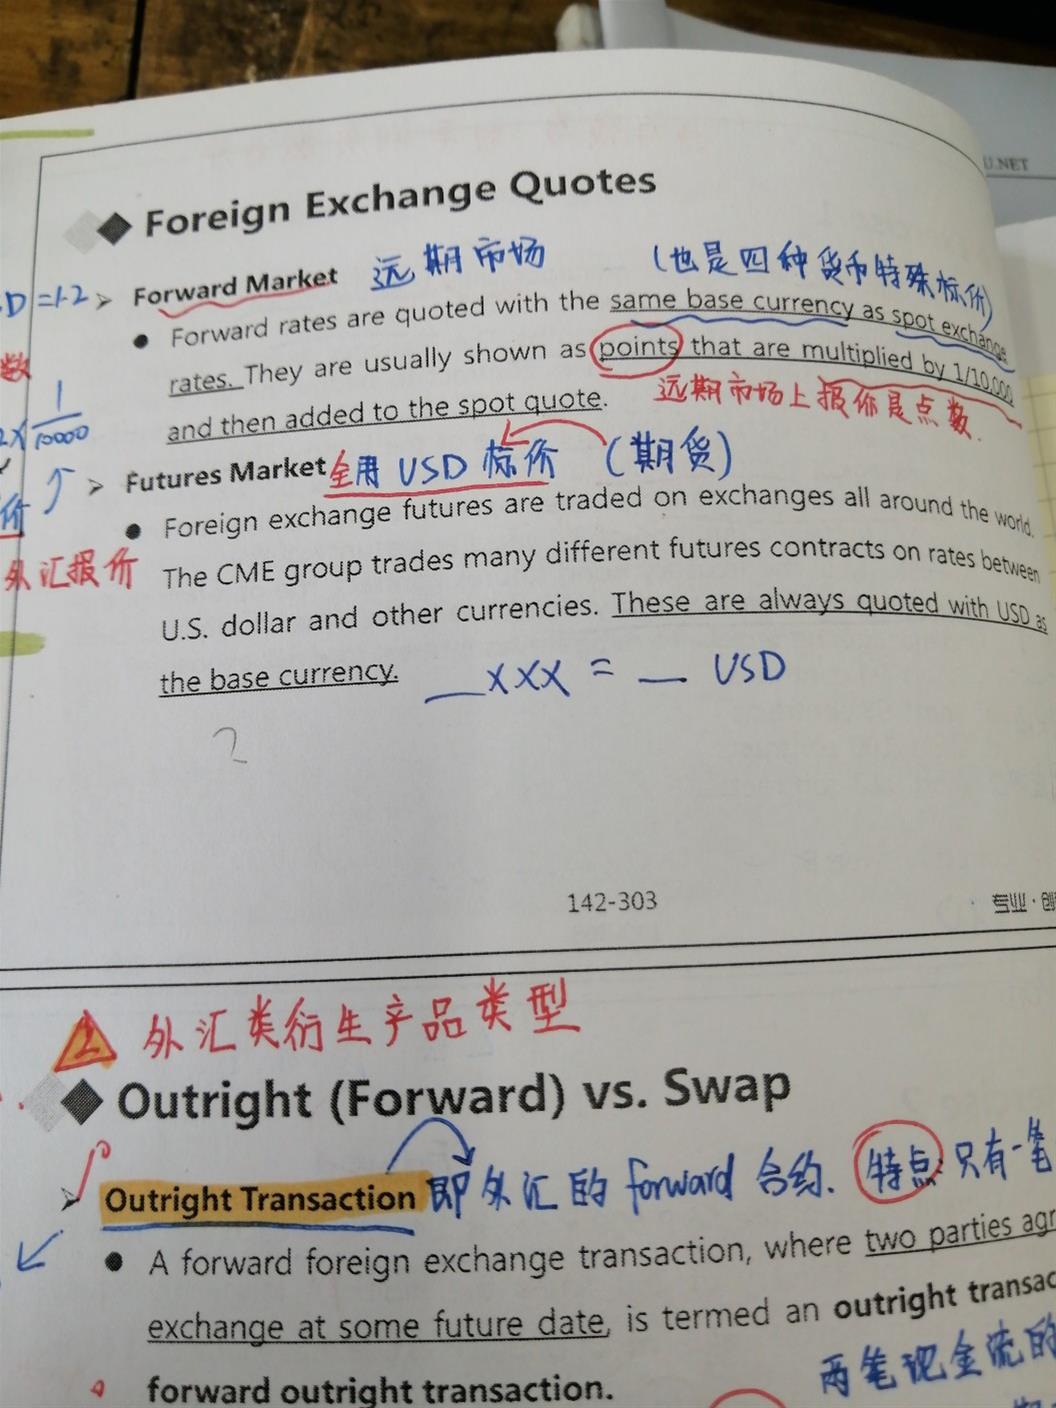 U.NET
Foreign Exchange Quotes
D = 1.2
Forward Market 远期市场 (也是四种货币特殊标价)
Forward rates are quoted with the same base currency as spot exchange
数
rates. They are usually shown as points that are multiplied by 1/10,000
远期市场上报价是点数.
and then added to the spot quote.
2× 1/10000
Futures Market 全用 USD 标价 (期货)
价
Foreign exchange futures are traded on exchanges all around the world.
外汇报价
The CME group trades many different futures contracts on rates between
U.S. dollar and other currencies. These are always quoted with USD as
the base currency. __XXX = __ USD
2
142-303
专业·创
2 外汇类衍生产品类型
Outright (Forward) vs. Swap
Outright Transaction 即外汇的 forward 合约. 特点: 只有一笔
A forward foreign exchange transaction, where two parties agr
exchange at some future date, is termed an outright transac
两笔现金流的
forward outright transaction.